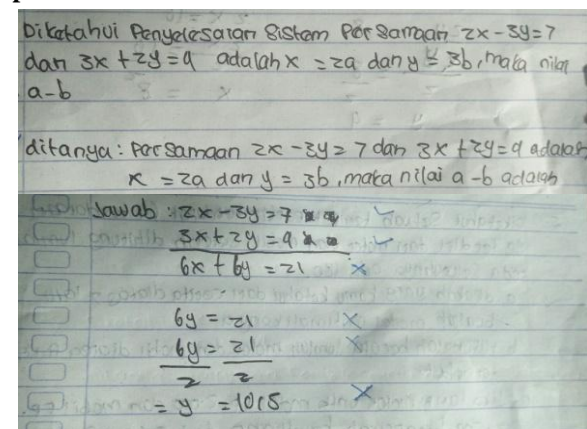 Diketahui Penyelesaian Sistem Persamaan 2x - 3y = 7
dan 3x + 2y = 9 adalah x = 2a dan y = 3b, maka nilai
a-b
ditanya : Persamaan 2x - 3y = 7 dan 3x + 2y = 9 adalah
x = 2a dan y = 3b, maka nilai a-b adalah
Jawab : 2x - 3y = 7 ✓
3x + 2y = 9 ✓
6x + 6y = 21 ×
6y = 21 ×
6y = 21 ×
2 2
= y = 10,5 ×